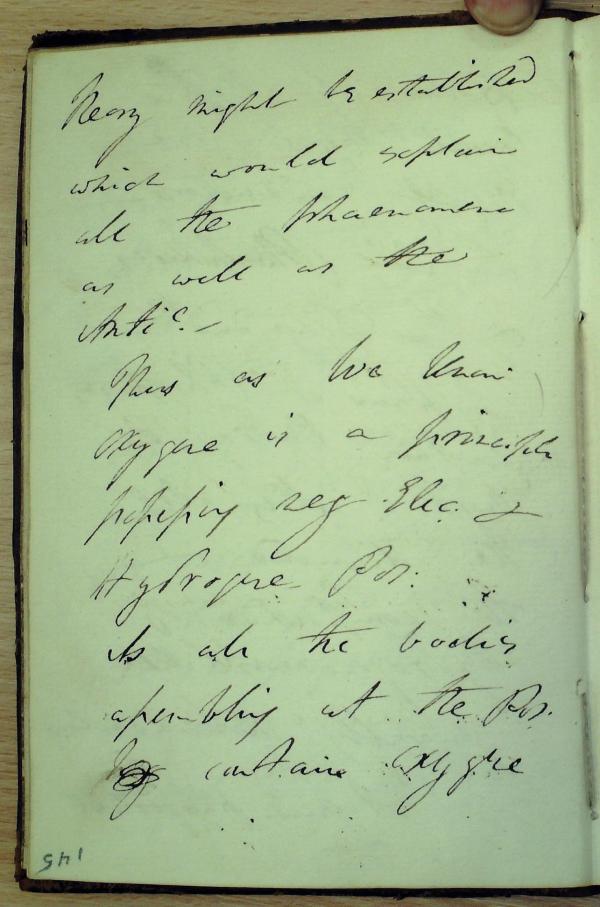 theory might be established
which would explain
all the phaenomena
as well as the
Anti^c. –
Thus as we know
oxygene is a principle
possessing neg Elec. &
Hydrogene Pos.
As all the bodies
assembling at the Pos.
contain oxygene
145